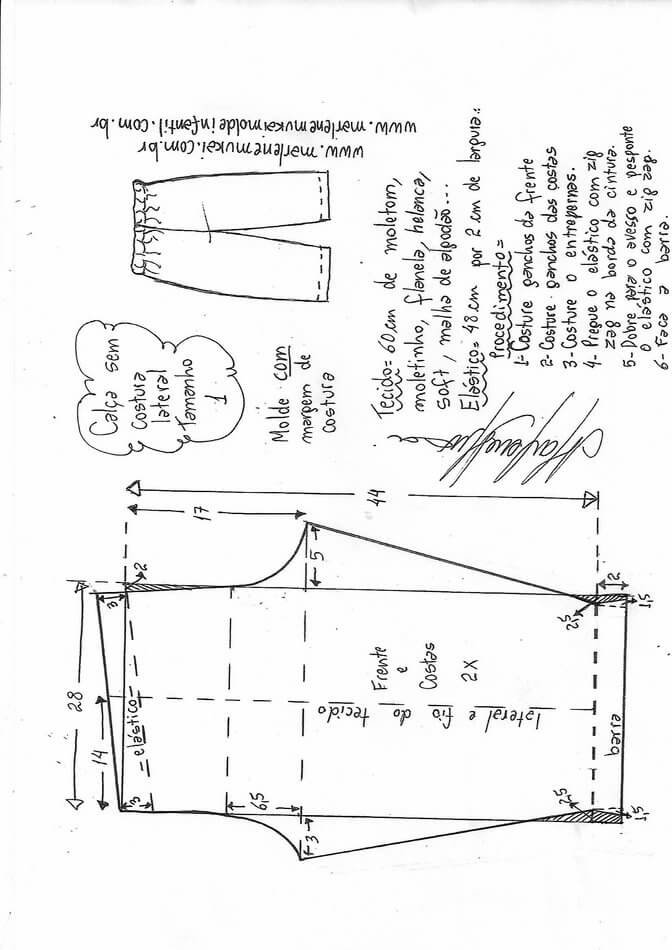 www.marlenemukaimoldeinfantil.com.br
www.marlenemukai.com.br
Calça sem
costura
lateral
Tamanho
1
Molde com
margem de
costura
Tecido= 60cm de moletom,
moletinho, flanela, helanca,
soft, malha de algodão...
Elástico= 48cm por 2cm de largura..
Procedimento=
1- Costure ganchos da frente
2- Costure ganchos das costas
3- Costure o entrepernas.
4- Pregue o elástico com zig
zag na borda da cintura.
5- Dobre para o avesso e pesponte
o elástico com zig zag.
6- Faca a barra.
44
17
2
3
28
14
elástico
3
6,5
3
5
Frente
e
Costas
2X
lateral e fio do tecido
2,5
2
1,5
barra
2,5
1,5